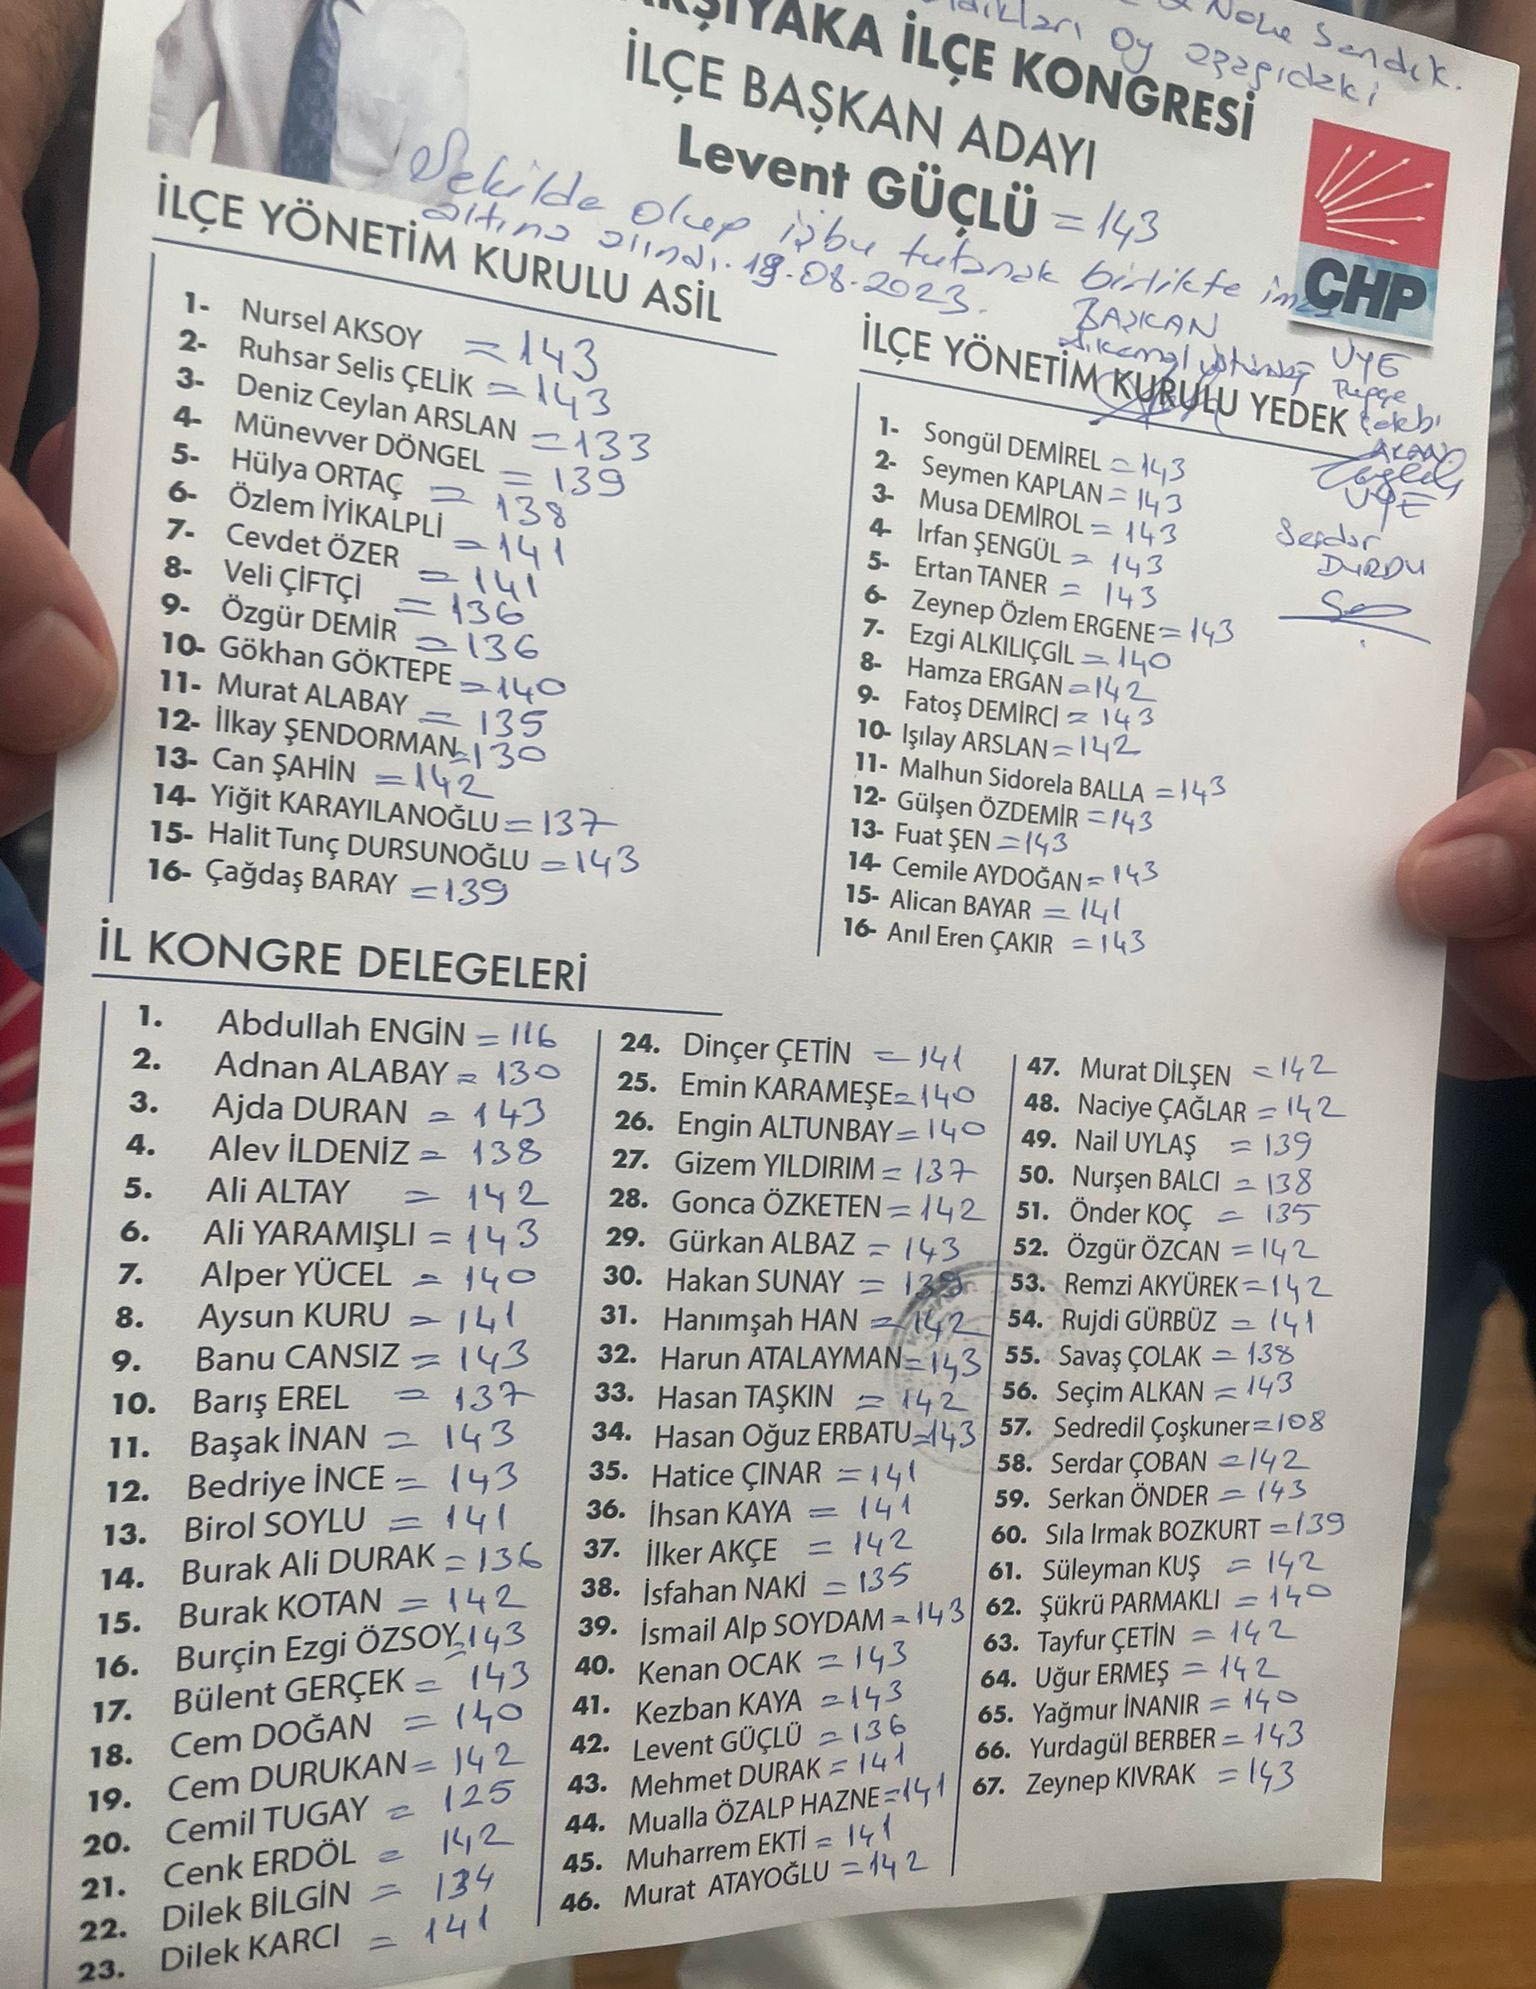 Nolu Sandık.
oy aşağıdaki
KARŞIYAKA İLÇE KONGRESİ
İLÇE BAŞKAN ADAYI
Levent GÜÇLÜ = 143
Şekilde olup işbu tutanak birlikte imza
altına alındı. 19.08.2023.
CHP
İLÇE YÖNETİM KURULU ASİL
1- Nursel AKSOY = 143
2- Ruhsar Selis ÇELİK = 143
3- Deniz Ceylan ARSLAN = 133
4- Münevver DÖNGEL = 139
5- Hülya ORTAÇ = 138
6- Özlem İYİKALPLİ = 141
7- Cevdet ÖZER = 141
8- Veli ÇİFTÇİ = 136
9- Özgür DEMİR = 136
10- Gökhan GÖKTEPE = 140
11- Murat ALABAY = 135
12- İlkay ŞENDORMAN = 130
13- Can ŞAHİN = 142
14- Yiğit KARAYILANOĞLU = 137
15- Halit Tunç DURSUNOĞLU = 143
16- Çağdaş BARAY = 139
BAŞKAN
ÜYE
İLÇE YÖNETİM KURULU YEDEK
ÜYE
Serdar
DURDU
1- Songül DEMİREL = 143
2- Seymen KAPLAN = 143
3- Musa DEMİROL = 143
4- İrfan ŞENGÜL = 143
5- Ertan TANER = 143
6- Zeynep Özlem ERGENE = 143
7- Ezgi ALKILIÇGİL = 140
8- Hamza ERGAN = 142
9- Fatoş DEMİRCİ = 143
10- Işılay ARSLAN = 142
11- Malhun Sidorela BALLA = 143
12- Gülşen ÖZDEMİR = 143
13- Fuat ŞEN = 143
14- Cemile AYDOĞAN = 143
15- Alican BAYAR = 141
16- Anıl Eren ÇAKIR = 143
İL KONGRE DELEGELERİ
1. Abdullah ENGİN = 116
2. Adnan ALABAY = 130
3. Ajda DURAN = 143
4. Alev İLDENİZ = 138
5. Ali ALTAY = 142
6. Ali YARAMIŞLI = 143
7. Alper YÜCEL = 140
8. Aysun KURU = 141
9. Banu CANSIZ = 143
10. Barış EREL = 137
11. Başak İNAN = 143
12. Bedriye İNCE = 143
13. Birol SOYLU = 141
14. Burak Ali DURAK = 136
15. Burak KOTAN = 142
16. Burçin Ezgi ÖZSOY = 143
17. Bülent GERÇEK = 143
18. Cem DOĞAN = 140
19. Cem DURUKAN = 142
20. Cemil TUGAY = 125
21. Cenk ERDÖL = 142
22. Dilek BİLGİN = 134
23. Dilek KARCI = 141
24. Dinçer ÇETİN = 141
25. Emin KARAMEŞE = 140
26. Engin ALTUNBAY = 140
27. Gizem YILDIRIM = 137
28. Gonca ÖZKETEN = 142
29. Gürkan ALBAZ = 143
30. Hakan SUNAY = 139
31. Hanımşah HAN = 142
32. Harun ATALAYMAN = 143
33. Hasan TAŞKIN = 142
34. Hasan Oğuz ERBATU = 143
35. Hatice ÇINAR = 141
36. İhsan KAYA = 141
37. İlker AKÇE = 142
38. İsfahan NAKİ = 135
39. İsmail Alp SOYDAM = 143
40. Kenan OCAK = 143
41. Kezban KAYA = 143
42. Levent GÜÇLÜ = 136
43. Mehmet DURAK = 141
44. Mualla ÖZALP HAZNE = 141
45. Muharrem EKTİ = 141
46. Murat ATAYOĞLU = 142
47. Murat DİLŞEN = 142
48. Naciye ÇAĞLAR = 142
49. Nail UYLAŞ = 139
50. Nurşen BALCI = 138
51. Önder KOÇ = 135
52. Özgür ÖZCAN = 142
53. Remzi AKYÜREK = 142
54. Rujdi GÜRBÜZ = 141
55. Savaş ÇOLAK = 138
56. Seçim ALKAN = 143
57. Sedredil Çoşkuner = 108
58. Serdar ÇOBAN = 142
59. Serkan ÖNDER = 143
60. Sıla Irmak BOZKURT = 139
61. Süleyman KUŞ = 142
62. Şükrü PARMAKLI = 140
63. Tayfur ÇETİN = 142
64. Uğur ERMEŞ = 142
65. Yağmur İNANIR = 140
66. Yurdagül BERBER = 143
67. Zeynep KIVRAK = 143